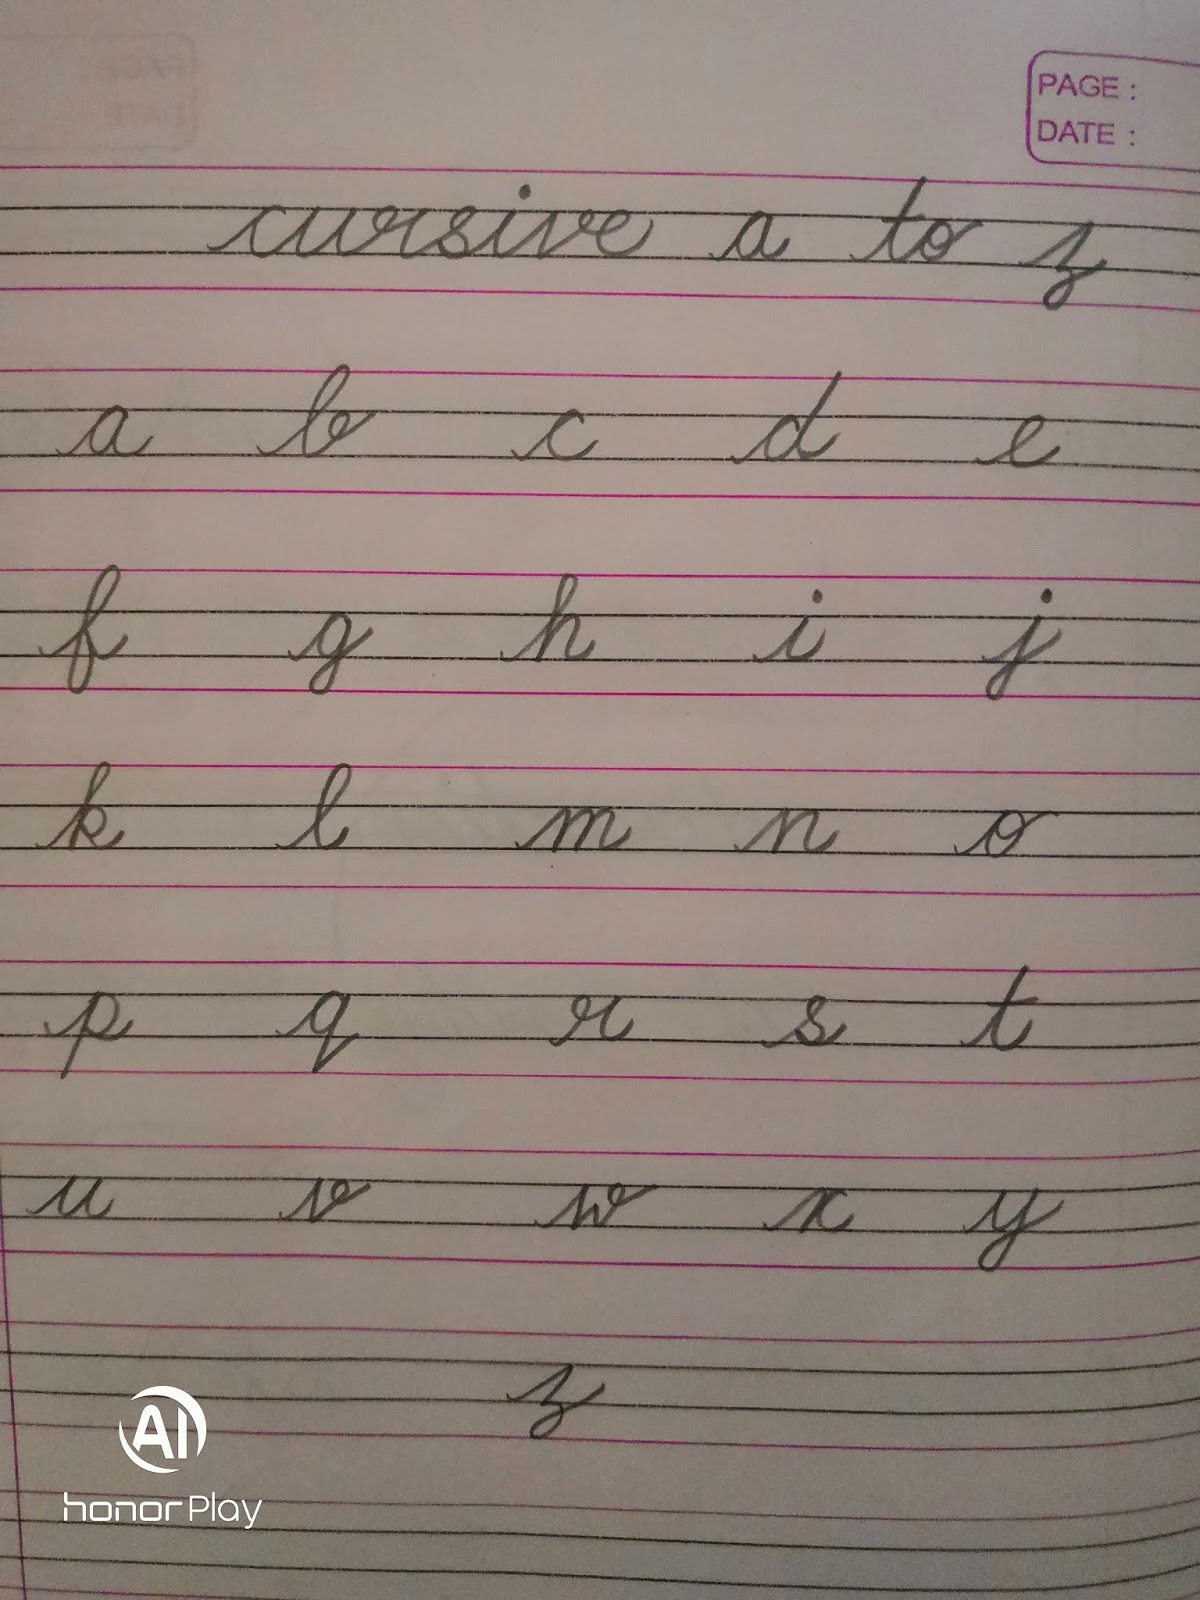 PAGE :
DATE :
cursive a to z
a b c d e
f g h i j
k l m n o
p q r s t
u v w x y
z
AI
honor Play